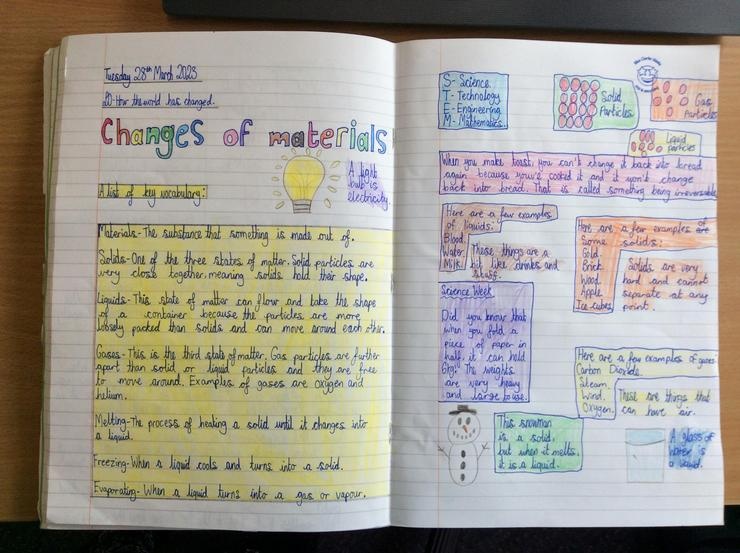 Tuesday 28th March 2023
LO-How the world has changed.
Changes of materials
A light
bulb is
electricity
A list of key vocabulary:
Materials-The substance that something is made out of.
Solids-One of the three states of matter. Solid particles are
very close together, meaning solids hold their shape.
Liquids-This state of matter can flow and take the shape
of a container because the particles are more
loosely packed than solids and can move around each other.
Gases-This is the third state of matter. Gas particles are further
apart than solid or liquid particles and they are free
to move around. Examples of gases are oxygen and
helium.
Melting-The process of heating a solid until it changes into
a liquid.
Freezing-When a liquid cools and turns into a solid.
Evaporating-When a liquid turns into a gas or vapour.
S-Science
T-Technology
E-Engineering
M-Mathematics.
Solid
Particles
Gas
Particles
Liquid
particles
When you make toast, you can't change it back into bread
again because you've cooked it and it won't change
back into bread. That is called something being irreversable
Here are a few examples
of liquids:
Blood
Water
Milk
These things are a
bit like drinks and
stuff.
Here are a few examples of
some solids:
Gold.
Brick.
Wood.
Apple.
Ice cubes
Solids are very
hard and cannot
separate at any
point.
Science Week
Did you know that
when you fold a
piece of paper in
half, it can hold
The weights
are very heavy
and large to use.
Here are a few examples of gases:
Carbon Dioxide.
Steam.
Wind.
Oxygen.
These are things that
can have air.
This snowman
is a solid,
but when it melts,
it is a liquid.
A glass of
water is
a liquid.